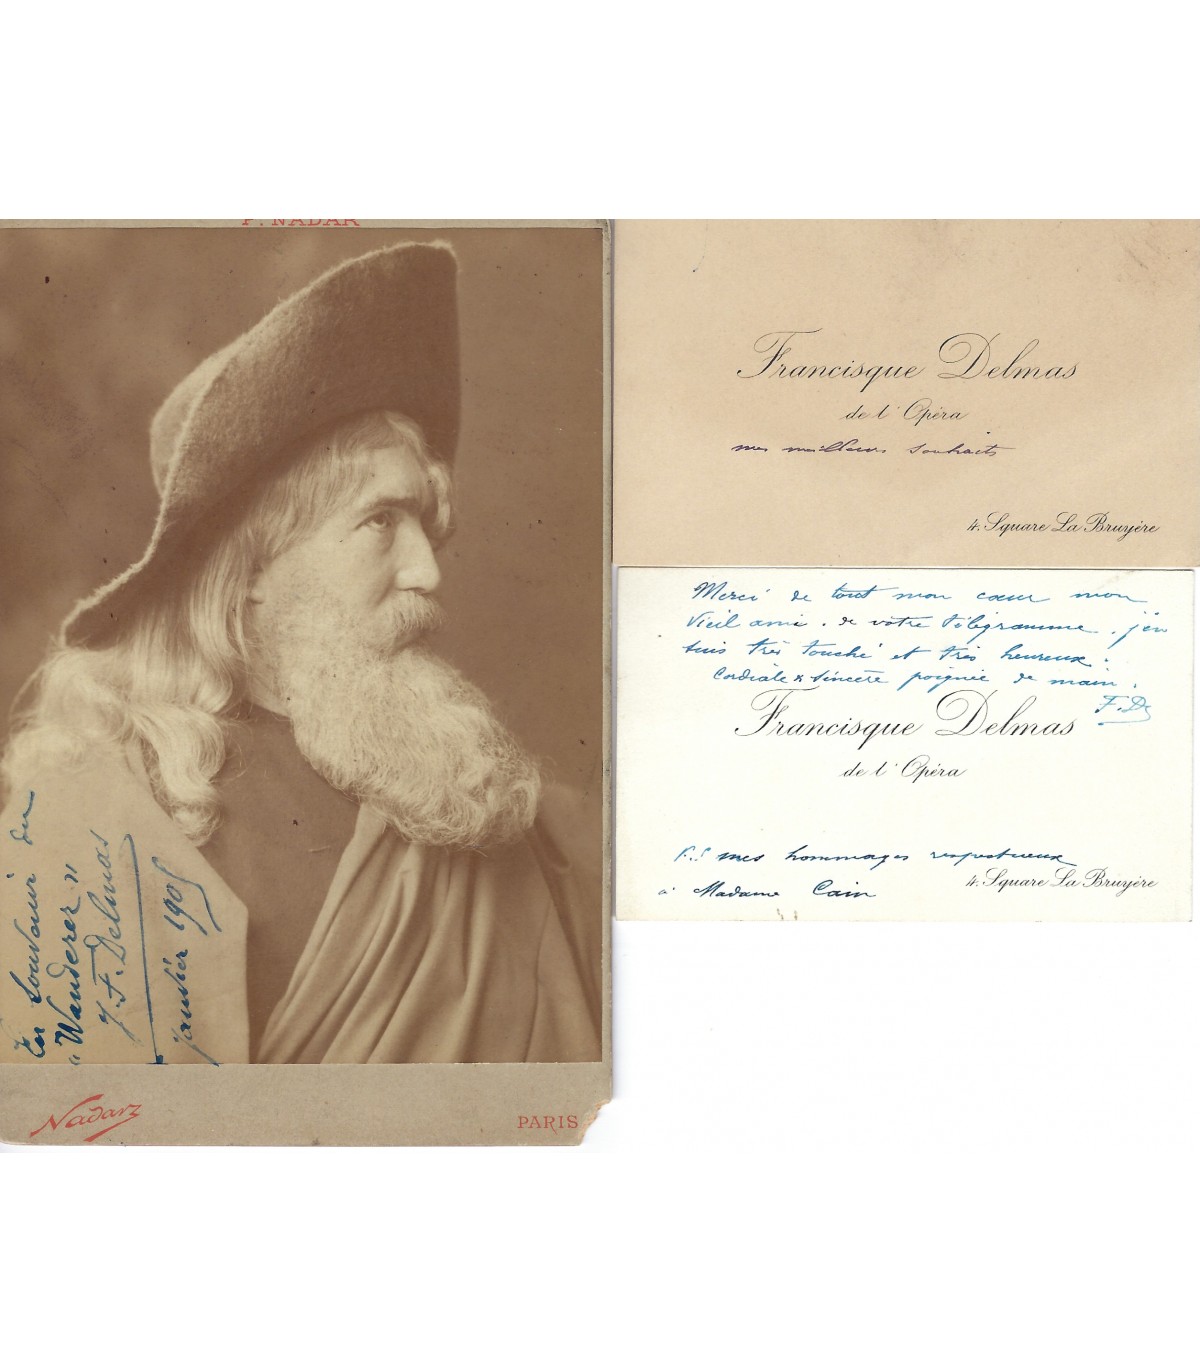 P. NADAR
En souvenir du
"Wanderer"
J. F. Delmas
janvier 1905
Nadar
PARIS
Francisque Delmas
de l'Opéra
mes meilleurs souhaits
4. Square La Bruyère
Merci de tout mon cœur mon
vieil ami. de votre télégramme. j'en
suis très touché et très heureux.
Cordiale & sincère poignée de main.
F. D.
Francisque Delmas
de l'Opéra
P.S mes hommages respectueux
à Madame Cain
4. Square La Bruyère